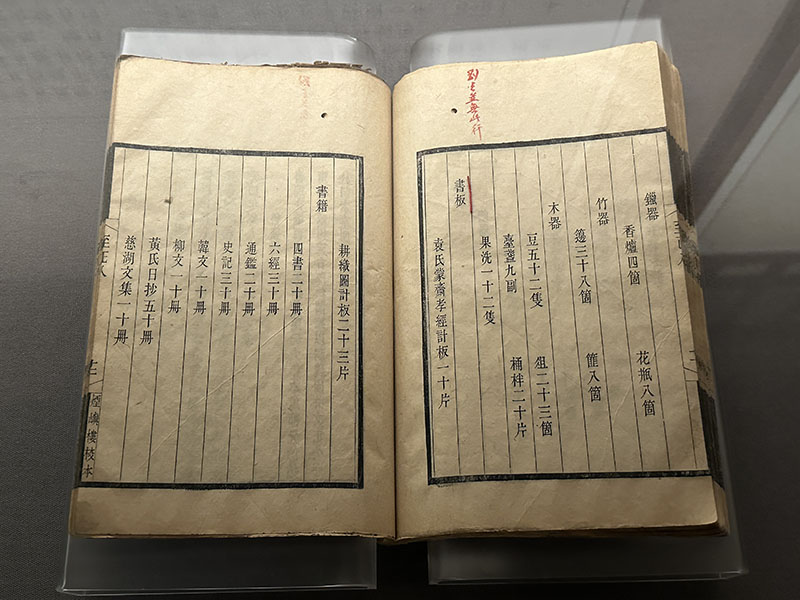 鑞器
香爐四箇 花瓶八箇
竹器
籩三十八箇 篚八箇
木器
豆五十二隻 俎二十三箇
臺盞九副 桶柈二十片
果洗一十二隻
書板
袁氏蒙齋孝經計板一十片
耕織圖計板二十三片
書籍
四書二十冊
六經三十冊
通鑑二十冊
史記三十冊
韓文一十冊
柳文一十冊
黃氏日抄五十冊
慈湖文集一十冊
煙嶼樓校本